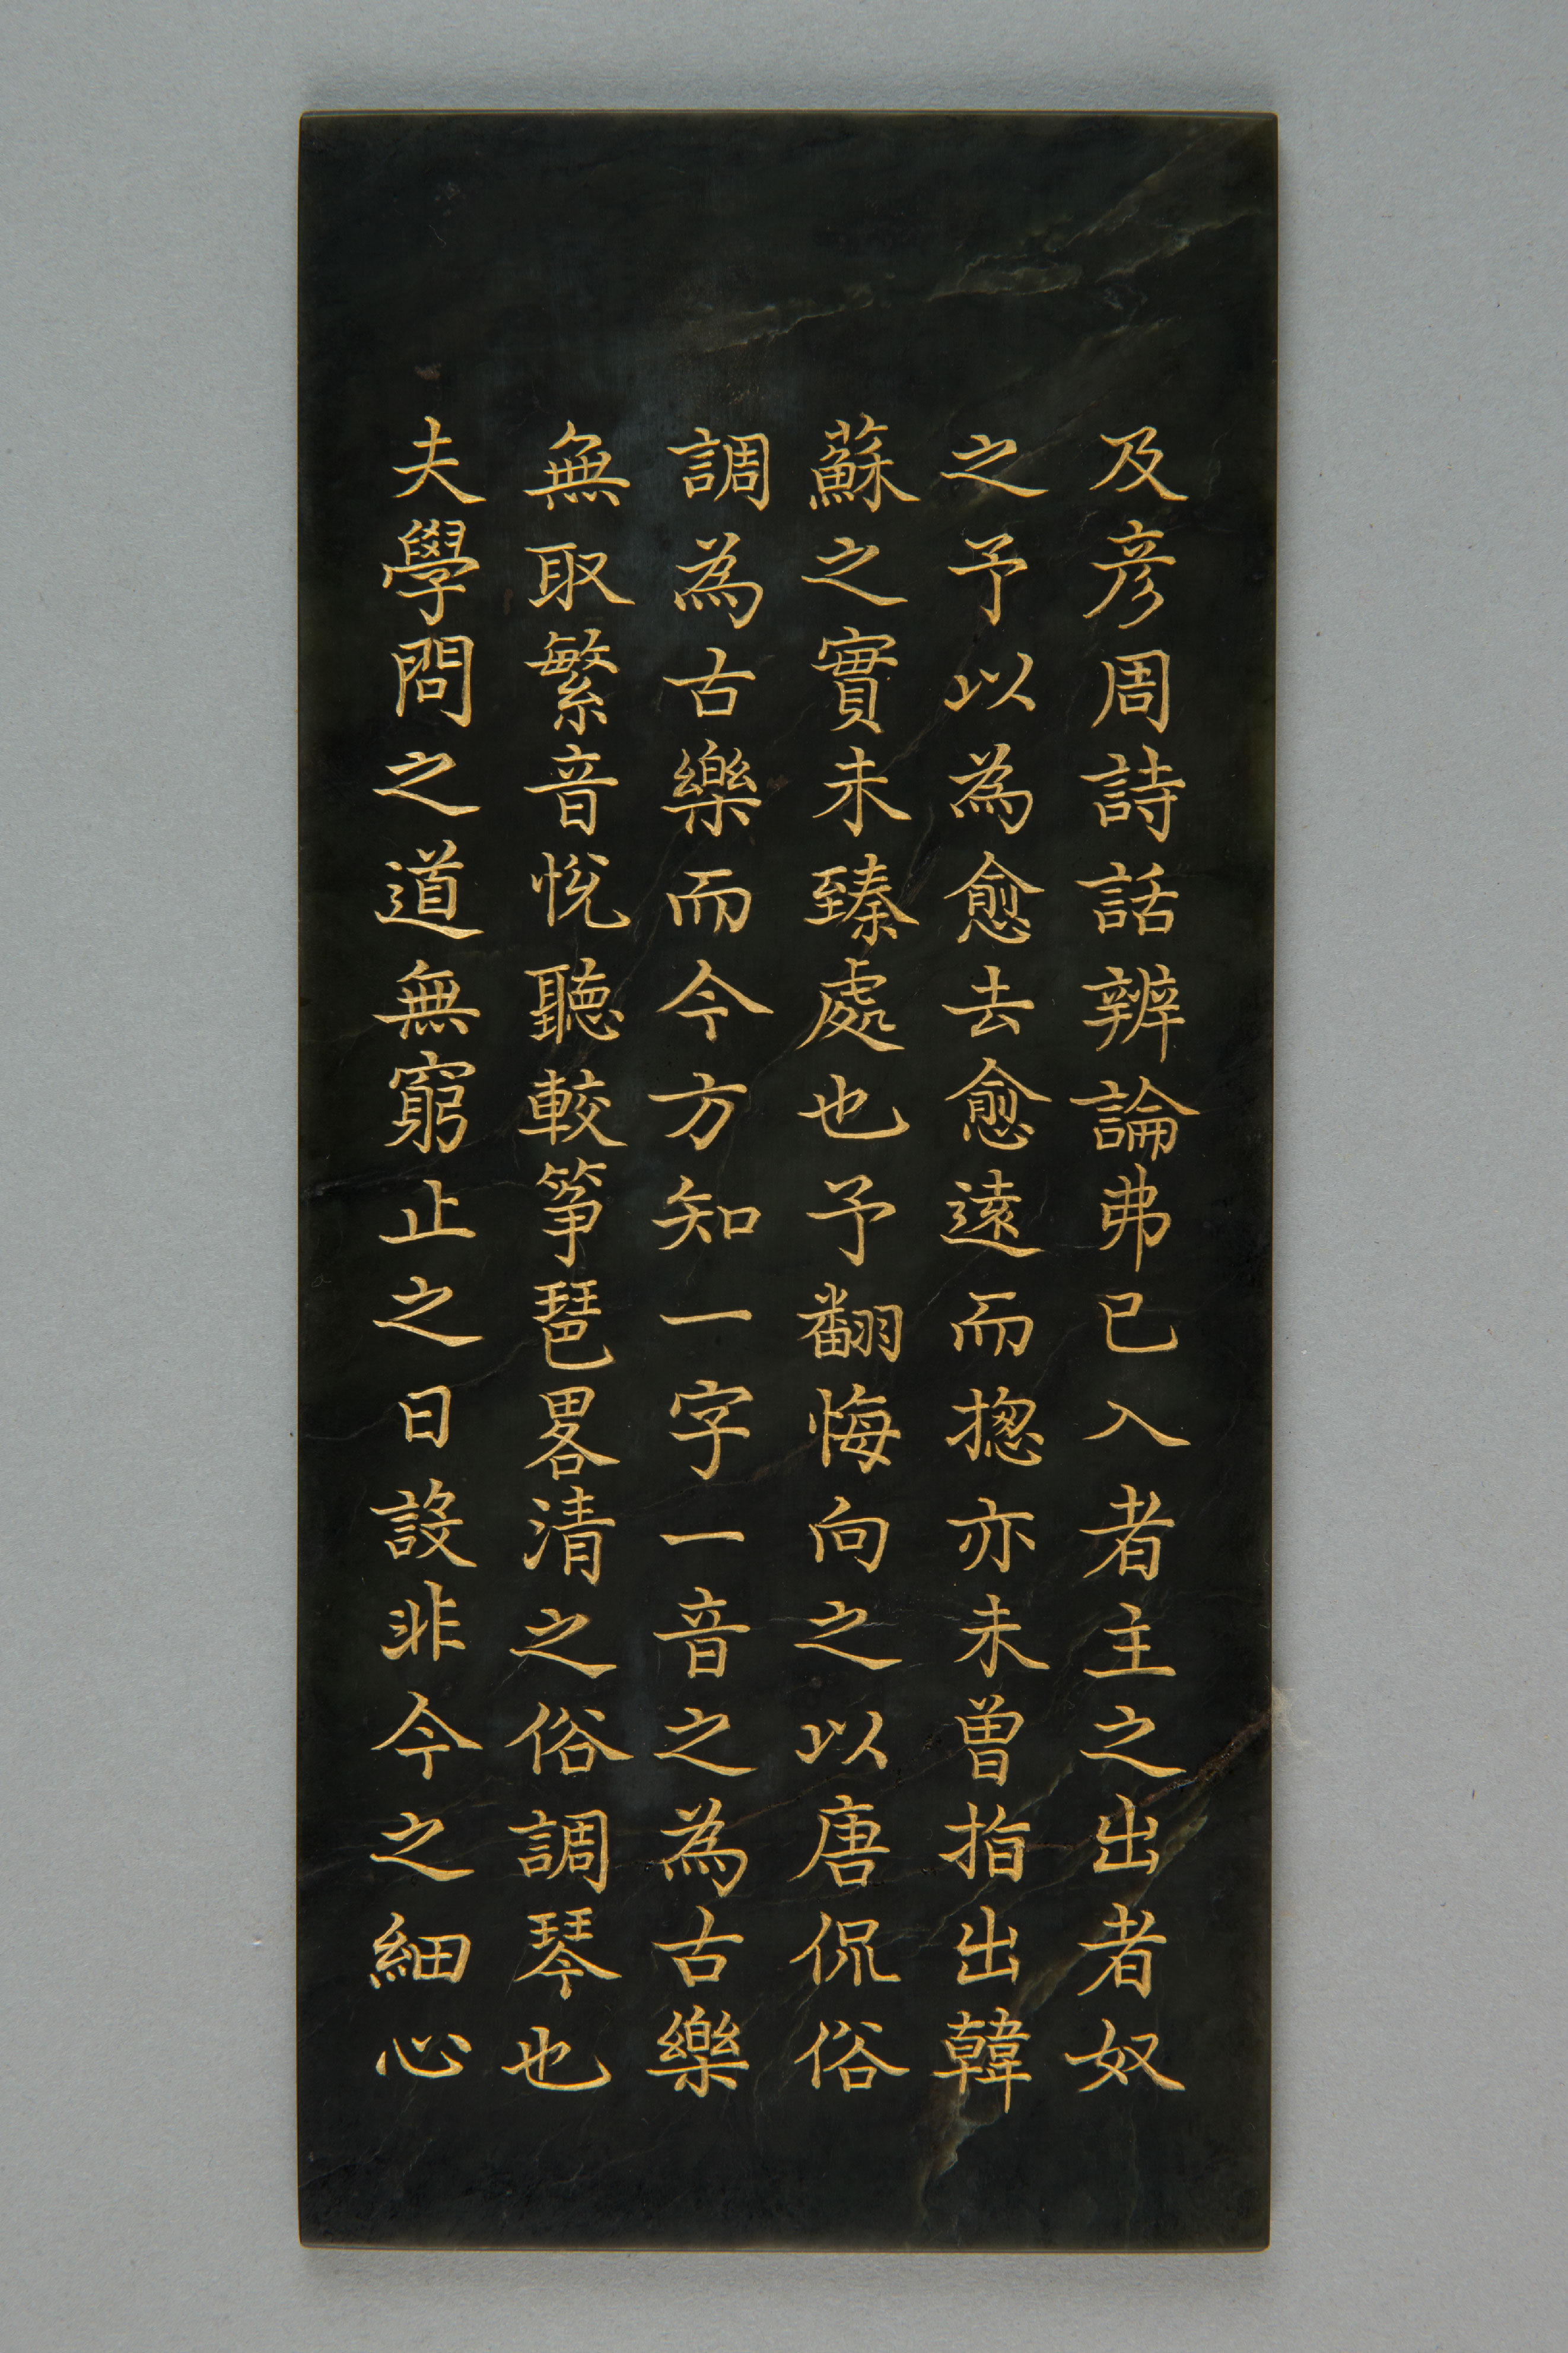 及彦周詩話辨論弗已入者主之出者奴
之予以為愈去愈遠而揔亦未曽指出韓
蘇之實未臻處也予翻悔向之以唐侃俗
調為古樂而今方知一字一音之為古樂
無取繁音悅聽較筝琶畧清之俗調琴也
夫學問之道無窮止之日設非今之細心